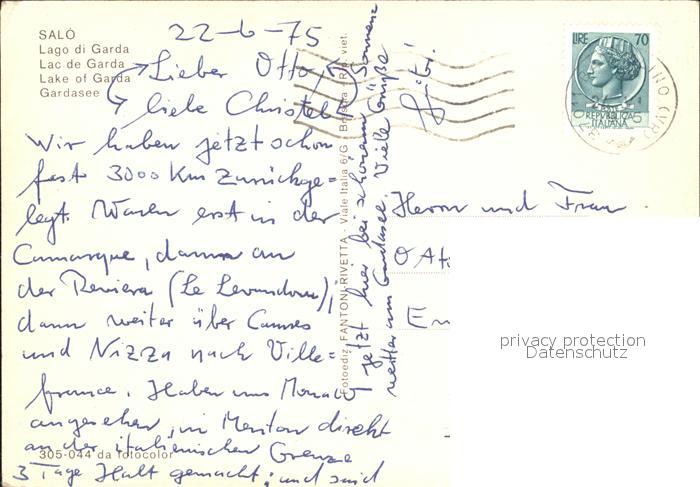 SALÒ
Lago di Garda
Lac de Garda
Lake of Garda
Gardasee
22-6-75
Lieber Otto,
liebe Christel!
Wir haben jetzt schon
fast 3000 Km zurückge=
legt. Waren erst in der
Camargue, dann an
der Reviera (Le Lavandou),
dann weiter über Cannes
und Nizza nach Ville=
franche. Haben uns Monaco
angesehen, in Menton direkt
an der italienischen Grenze
3 Tage Halt gemacht, und sind
jetzt hier bei schönem Sonnen=
wetter am Gardasee. Viele Grüße
305-044 da fotocolor
Fotoediz. FANTONI-RIVETTA - Viale Italia 6/G - Brescia - Rip. viet.
LIRE 70
POSTE
REPVBBLICA
ITALIANA
Herrn und Frau
privacy protection
Datenschutz